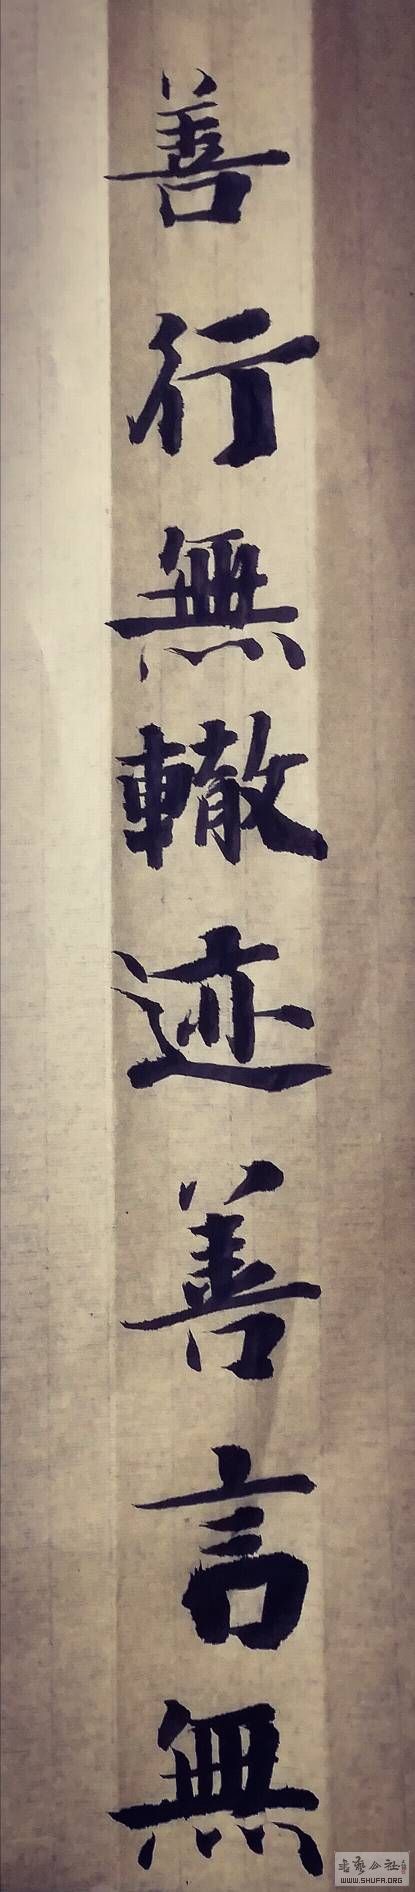 善行無轍迹善言無
書藝公社
WWW.SHUFA.ORG